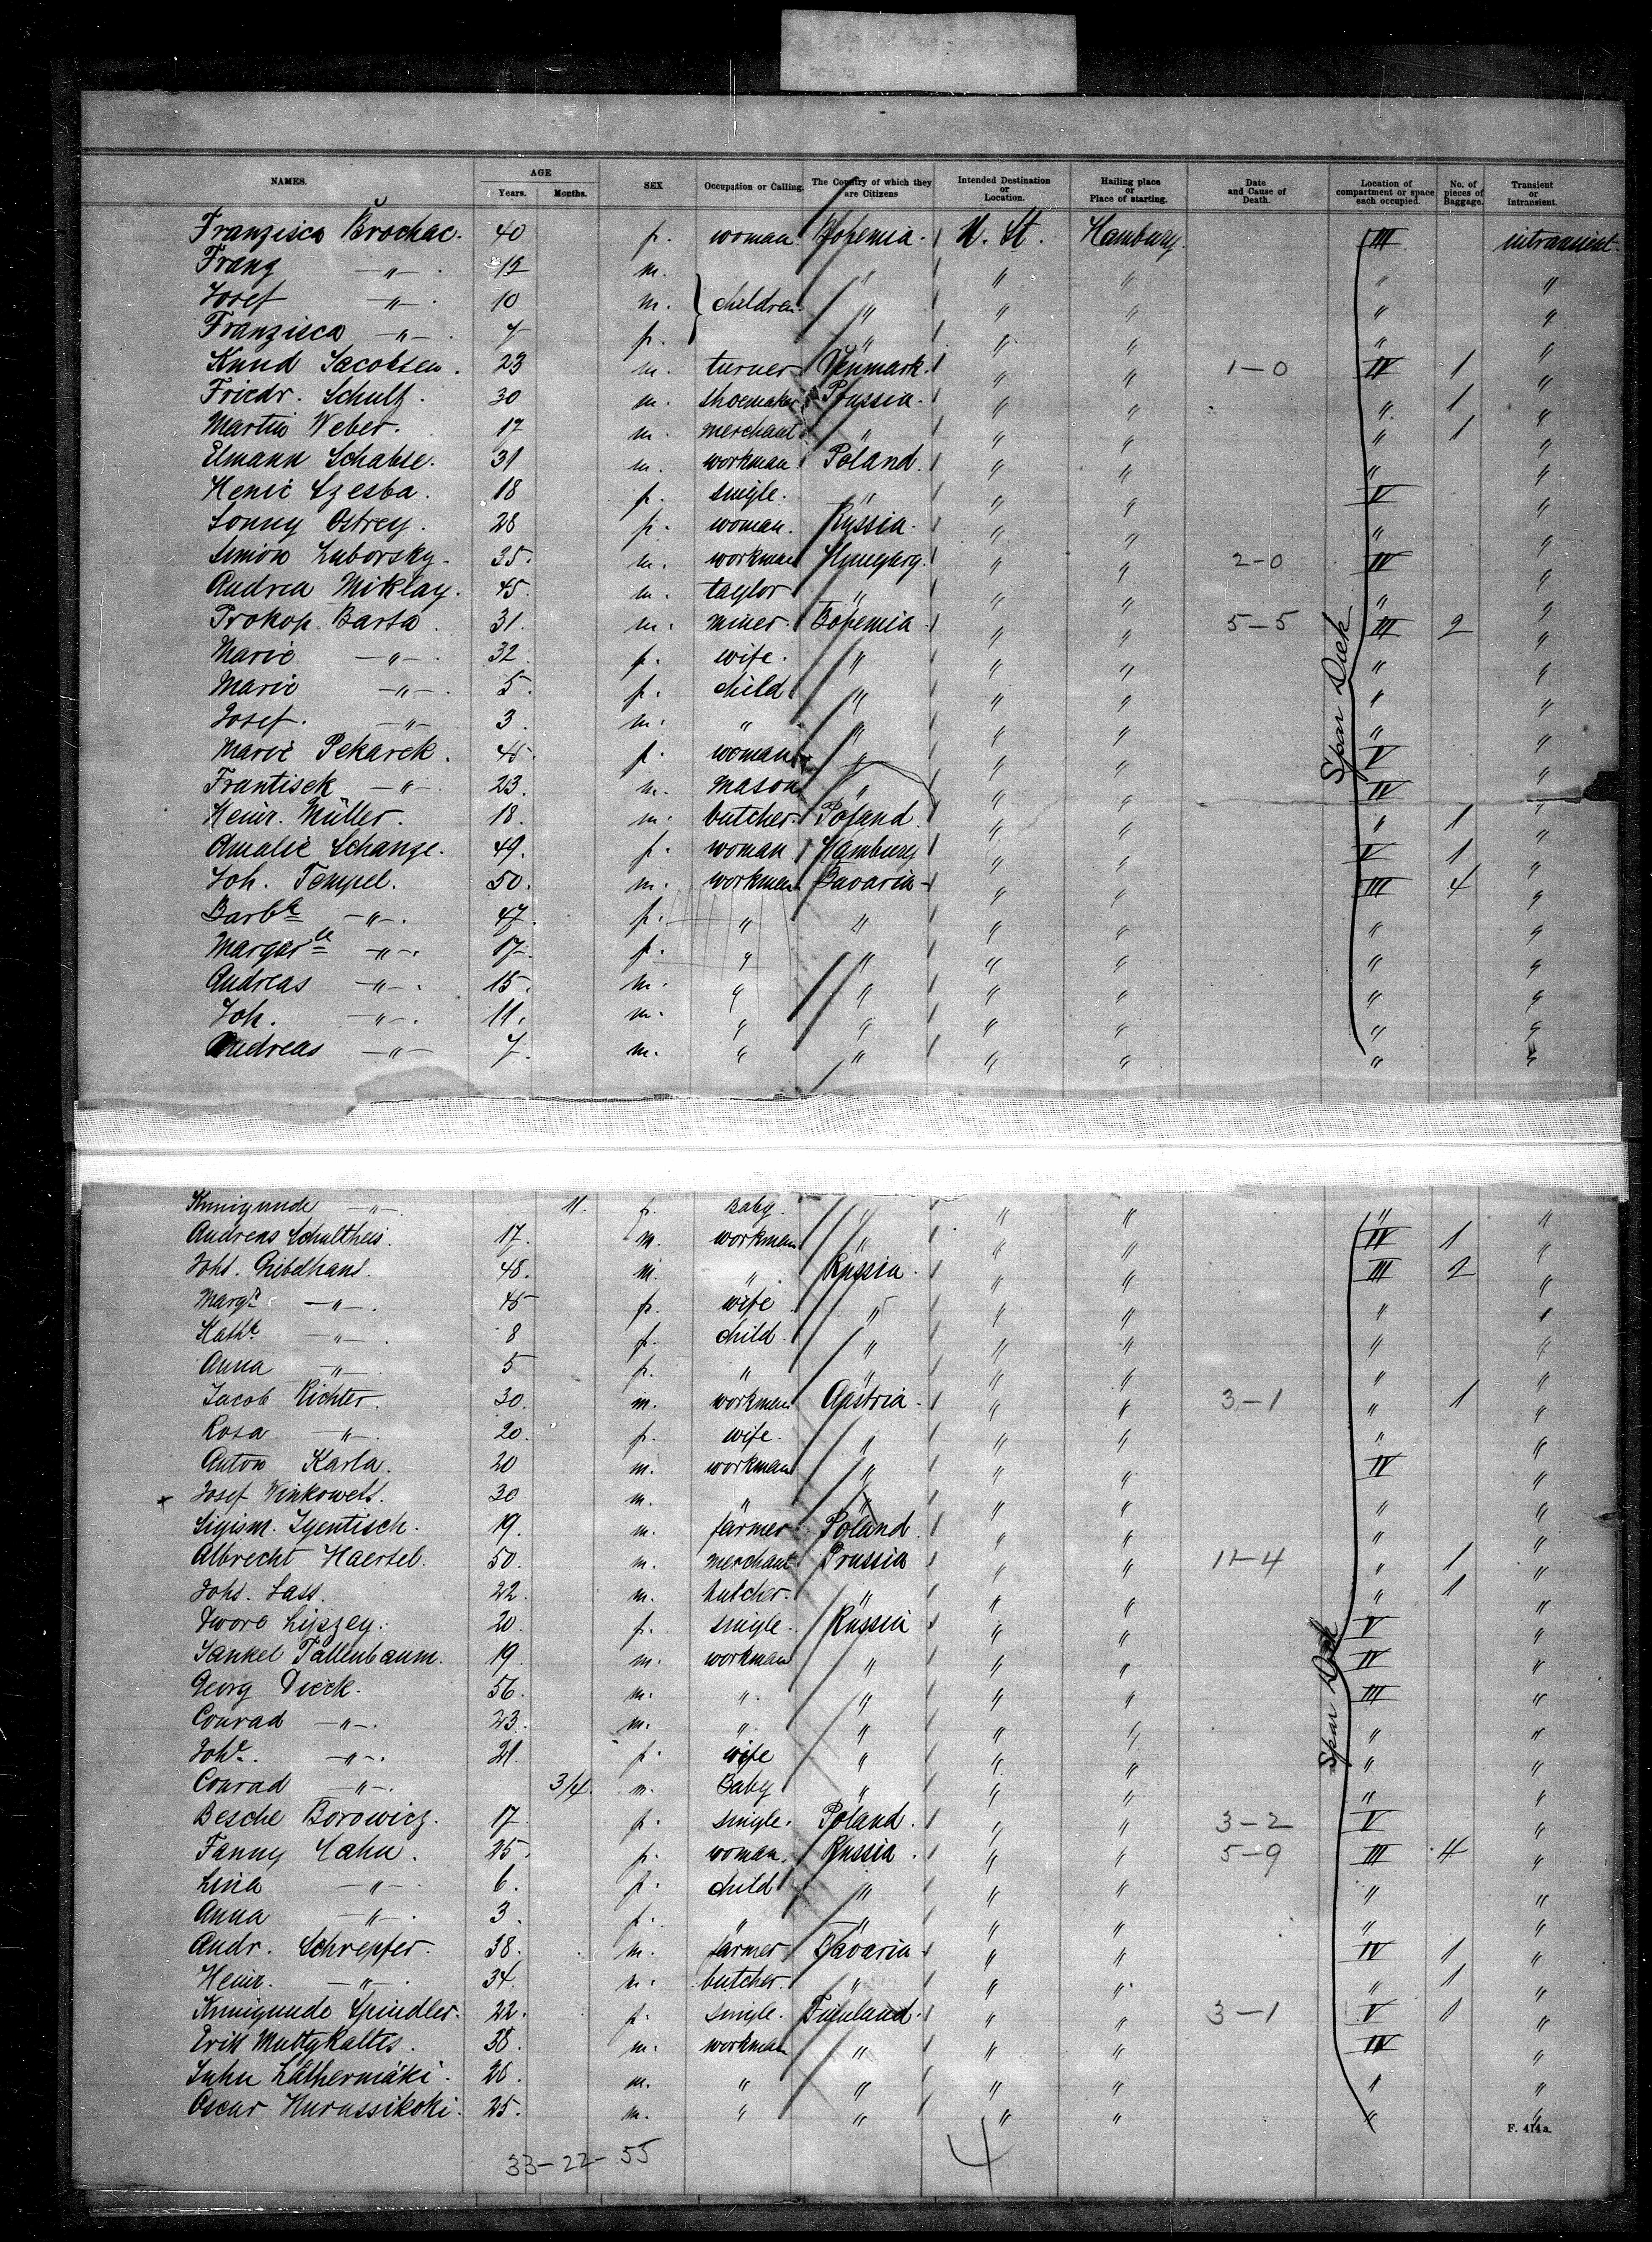 NAMES. AGE Years. Months. SEX Occupation or Calling. The Country of which they are Citizens Intended Destination or Location. Hailing place or Place of starting. Date and Cause of Death. Location of compartment or space each occupied. No. of pieces of Baggage. Transient or Intransient.
Franzisca Brochac. 40 f. woman Bohemia. U. St. Hamburg. III intransient.
Franz —"— . 12 m. " " " " "
Josef —"— . 10 m. } children " " " " "
Franzisca —"— . 7 f. " " " " "
Knud Jacobsen. 23 m. turner Denmark. " " 1-0 IV 1 "
Friedr. Schultz. 30 m. shoemaker Prussia. " " " 1 "
Martin Weber. 17 m. merchant " " " " 1 "
Elmann Schabse. 31 m. workman Poland. " " " "
Henie Szesba. 18 f. single. " " " V "
Sonny Ostrey. 28 f. woman. Russia. " " " "
Simion Luborsky. 35. m. workman Hungary. " " 2-0 IV "
Andrea Miklay. 45. m. taylor " " " " "
Prokop Barta. 31. m. miner. Bohemia " " 5-5 III 2 "
Marie —"— . 32. f. wife. " " " " "
Marie —"— . 5. f. child " " " " "
Josef. —"— 3. m. " " " " " "
Marie Pekarek. 45. f. woman " " " V "
Frantisek —"— 23. m. mason " " " IV "
Heinr. Müller. 18. m. butcher. Poland. " " " 1 "
Amalie Schanze. 49. f. woman Hamburg " " V 1 "
Joh. Tempel. 50. m. workman Bavaria " " III 4 "
Barba —"— . 47. f. " " " " " "
Margar —"— . 17. f. " " " " " "
Andreas —"— . 15. m. " " " " " "
Joh. —"— . 11. m. " " " " " "
Andreas —"— 7. m. " " " " " "
Spar Deck
Kunigunde —"— . 11. f. Baby. " " " " "
Andreas Schultheis. 17. m. workman " " " IV 1 "
Johs. Gibelhaus. 48. m. " Russia. " " III 2 "
Marg. —"— . 45 f. wife " " " " "
Kath. —"— . 8 f. child. " " " " "
Anna —"— 5 f. " " " " " "
Jacob Richter. 30. m. workman Austria. " " 3-1 " 1 "
Rosa —"— . 20. f. wife. " " " " "
Anton Karla. 20 m. workman " " " IV "
x Josef Winkowets. 30. m. " " " " " "
Sigism. Zgentisch. 19. m. farmer Poland. " " " "
Albrecht Haertel. 50. m. merchant Prussia " " 11-4 " 1 "
Johs. Lass. 22. m. butcher. " " " " 1 "
Dwore Lipszey. 20. f. single. Russia " " V "
Jankel Tallenbaum. 19. m. workman " " " IV "
Georg Dieck. 56. m. " " " " III "
Conrad —"— . 23. m. " " " " " "
Joh. —"— . 21. f. wife " " " " "
Conrad —"— . 3/4. m. Baby " " " " "
Besche Borowicz. 17. f. single. Poland. " " 3-2 V "
Fanny Cahn. 25. f. woman. Russia. " " 5-9 III 4 "
Lina —"— . 6. f. child " " " " "
Anna —"— . 3. f. " " " " " "
Andr. Schrepfer. 38. m. farmer Bavaria " " IV 1 "
Heinr. —"— . 34. m. butcher. " " " " 1 "
Kunigunde Spindler. 22. f. single. Finnland. " " 3-1 V 1 "
Erik Muttykaltis. 38. m. workman " " " IV "
Juhu Läthermäki. 26. m. " " " " " "
Oscar Hurussikoki. 25. m. " " " " " "
Spar Deck
F. 414a.
33-22-55 4